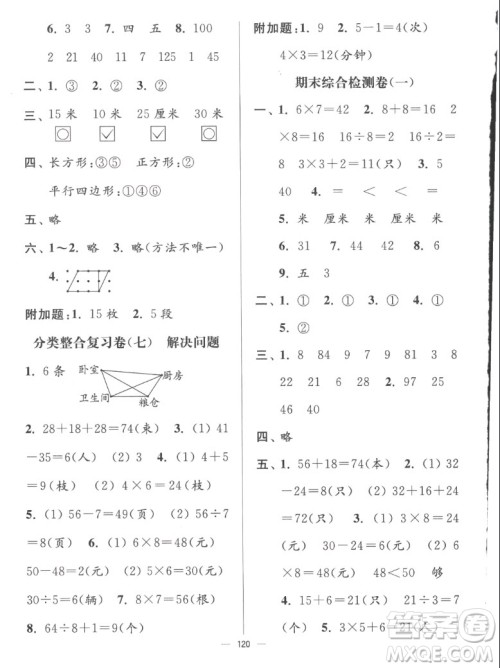 6. 3 7. 四 五 8. 100
2 11 121 1 2 45 125
二、① ② ③ ② ①
三、15 米 10 米 25 厘米 30 米
四、长方形:③⑤ 正方形:②⑤
平行四边形:①④⑥
五、略
六、1～2. 略 3. 略(方法不唯一)
4.
附加题:1. 15 枚 2. 5 段
分类整合复习卷(七) 解决问题
1. 6 条 卧室
厨房
卫生间 粮仓
2. 28+18+28=74(束) 3. (1) 41
-35=6(人) (2) 5 4. (1) 4+5
=9(枝) (2) 4×6=24(枝)
5. (1) 56-7=49(页) (2) 56÷7
=8(页) 6. (1) 6×8=48(元)
50-48=2(元) (2) 5×6=30(元)
30÷5=6(辆) 7. 8×7=56(根)
8. 64÷8+1=9(个)
附加题:1. 5-1=4(次)
4×3=12(分钟)
期末综合检测卷(一)
一、1. 6×7=42 2. 8+8=16 2
×8=16 16÷2=8 16÷8=
2 3×3+2=11(只) 3. 5
40 4. = < < =
5. 米 厘米 厘米 米 6. 40
28 7. 10 8. 8÷8
9. 五 3
二、1. ① 2. ③ 3. ① 4. ①
5. ②
三、1. 18 9 41 47 81 48
32 9 54 40 2 1 2. 82
54 24 9
四、略
五、1. 56+18=74(本) 2. (1) 32
-24=8(只) (2) 32+16+24
=72(只) 3. (1) 24÷8=3(元)
30-24=6(元) (2) 3×4=
12(元) 4. 6×8=48(元)
50-48=2(元) 48<50 够
5. (1) 24÷4=6(个) 6+1=7
(个) (2) 3×4+5×6+4×6
120